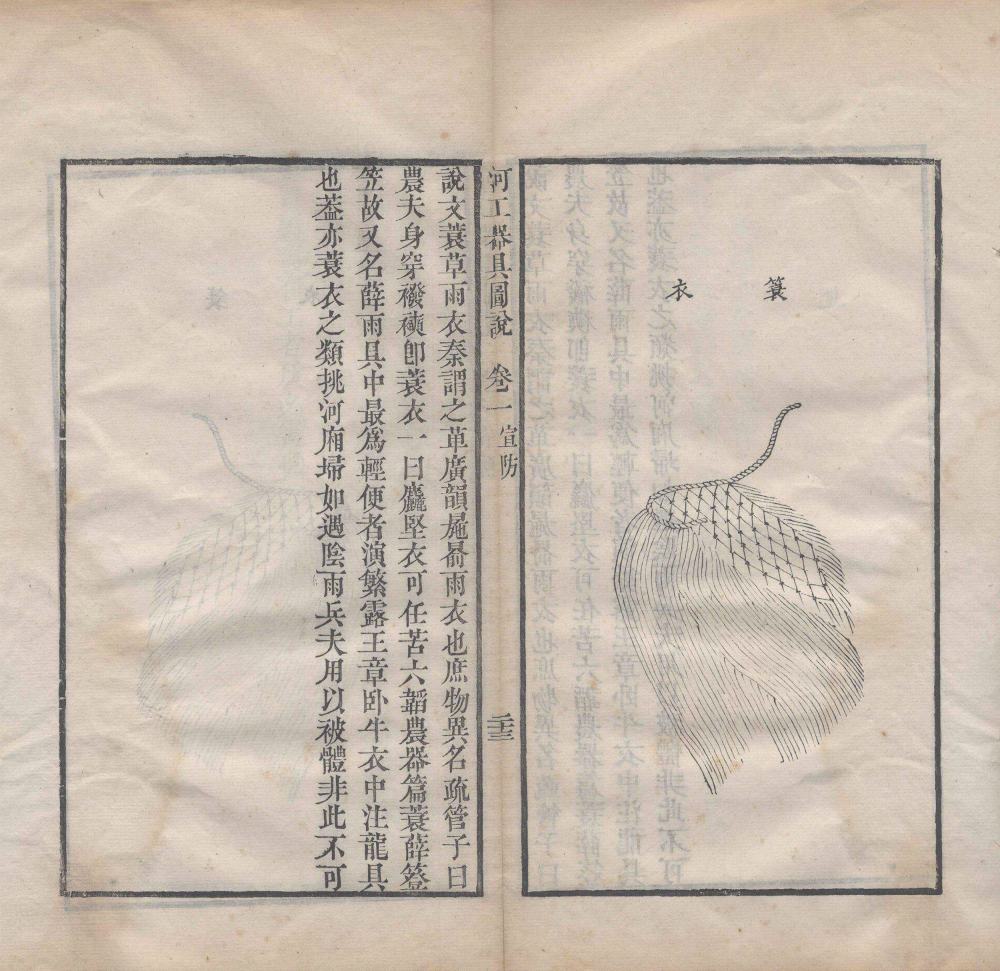 蓑衣
河工器具圖說 卷一 宣防 二十三
說文蓑草雨衣秦謂之萆廣韻䙝䙓雨衣也庶物異名疏管子曰
農夫身穿襏襫卽蓑衣一曰麤堅衣可任苦六韜農器篇蓑薛簦
笠故又名薛雨具中最爲輕便者演繁露王章卧牛衣中注龍具
也葢亦蓑衣之類挑河廂埽如遇陰雨兵夫用以被體非此不可